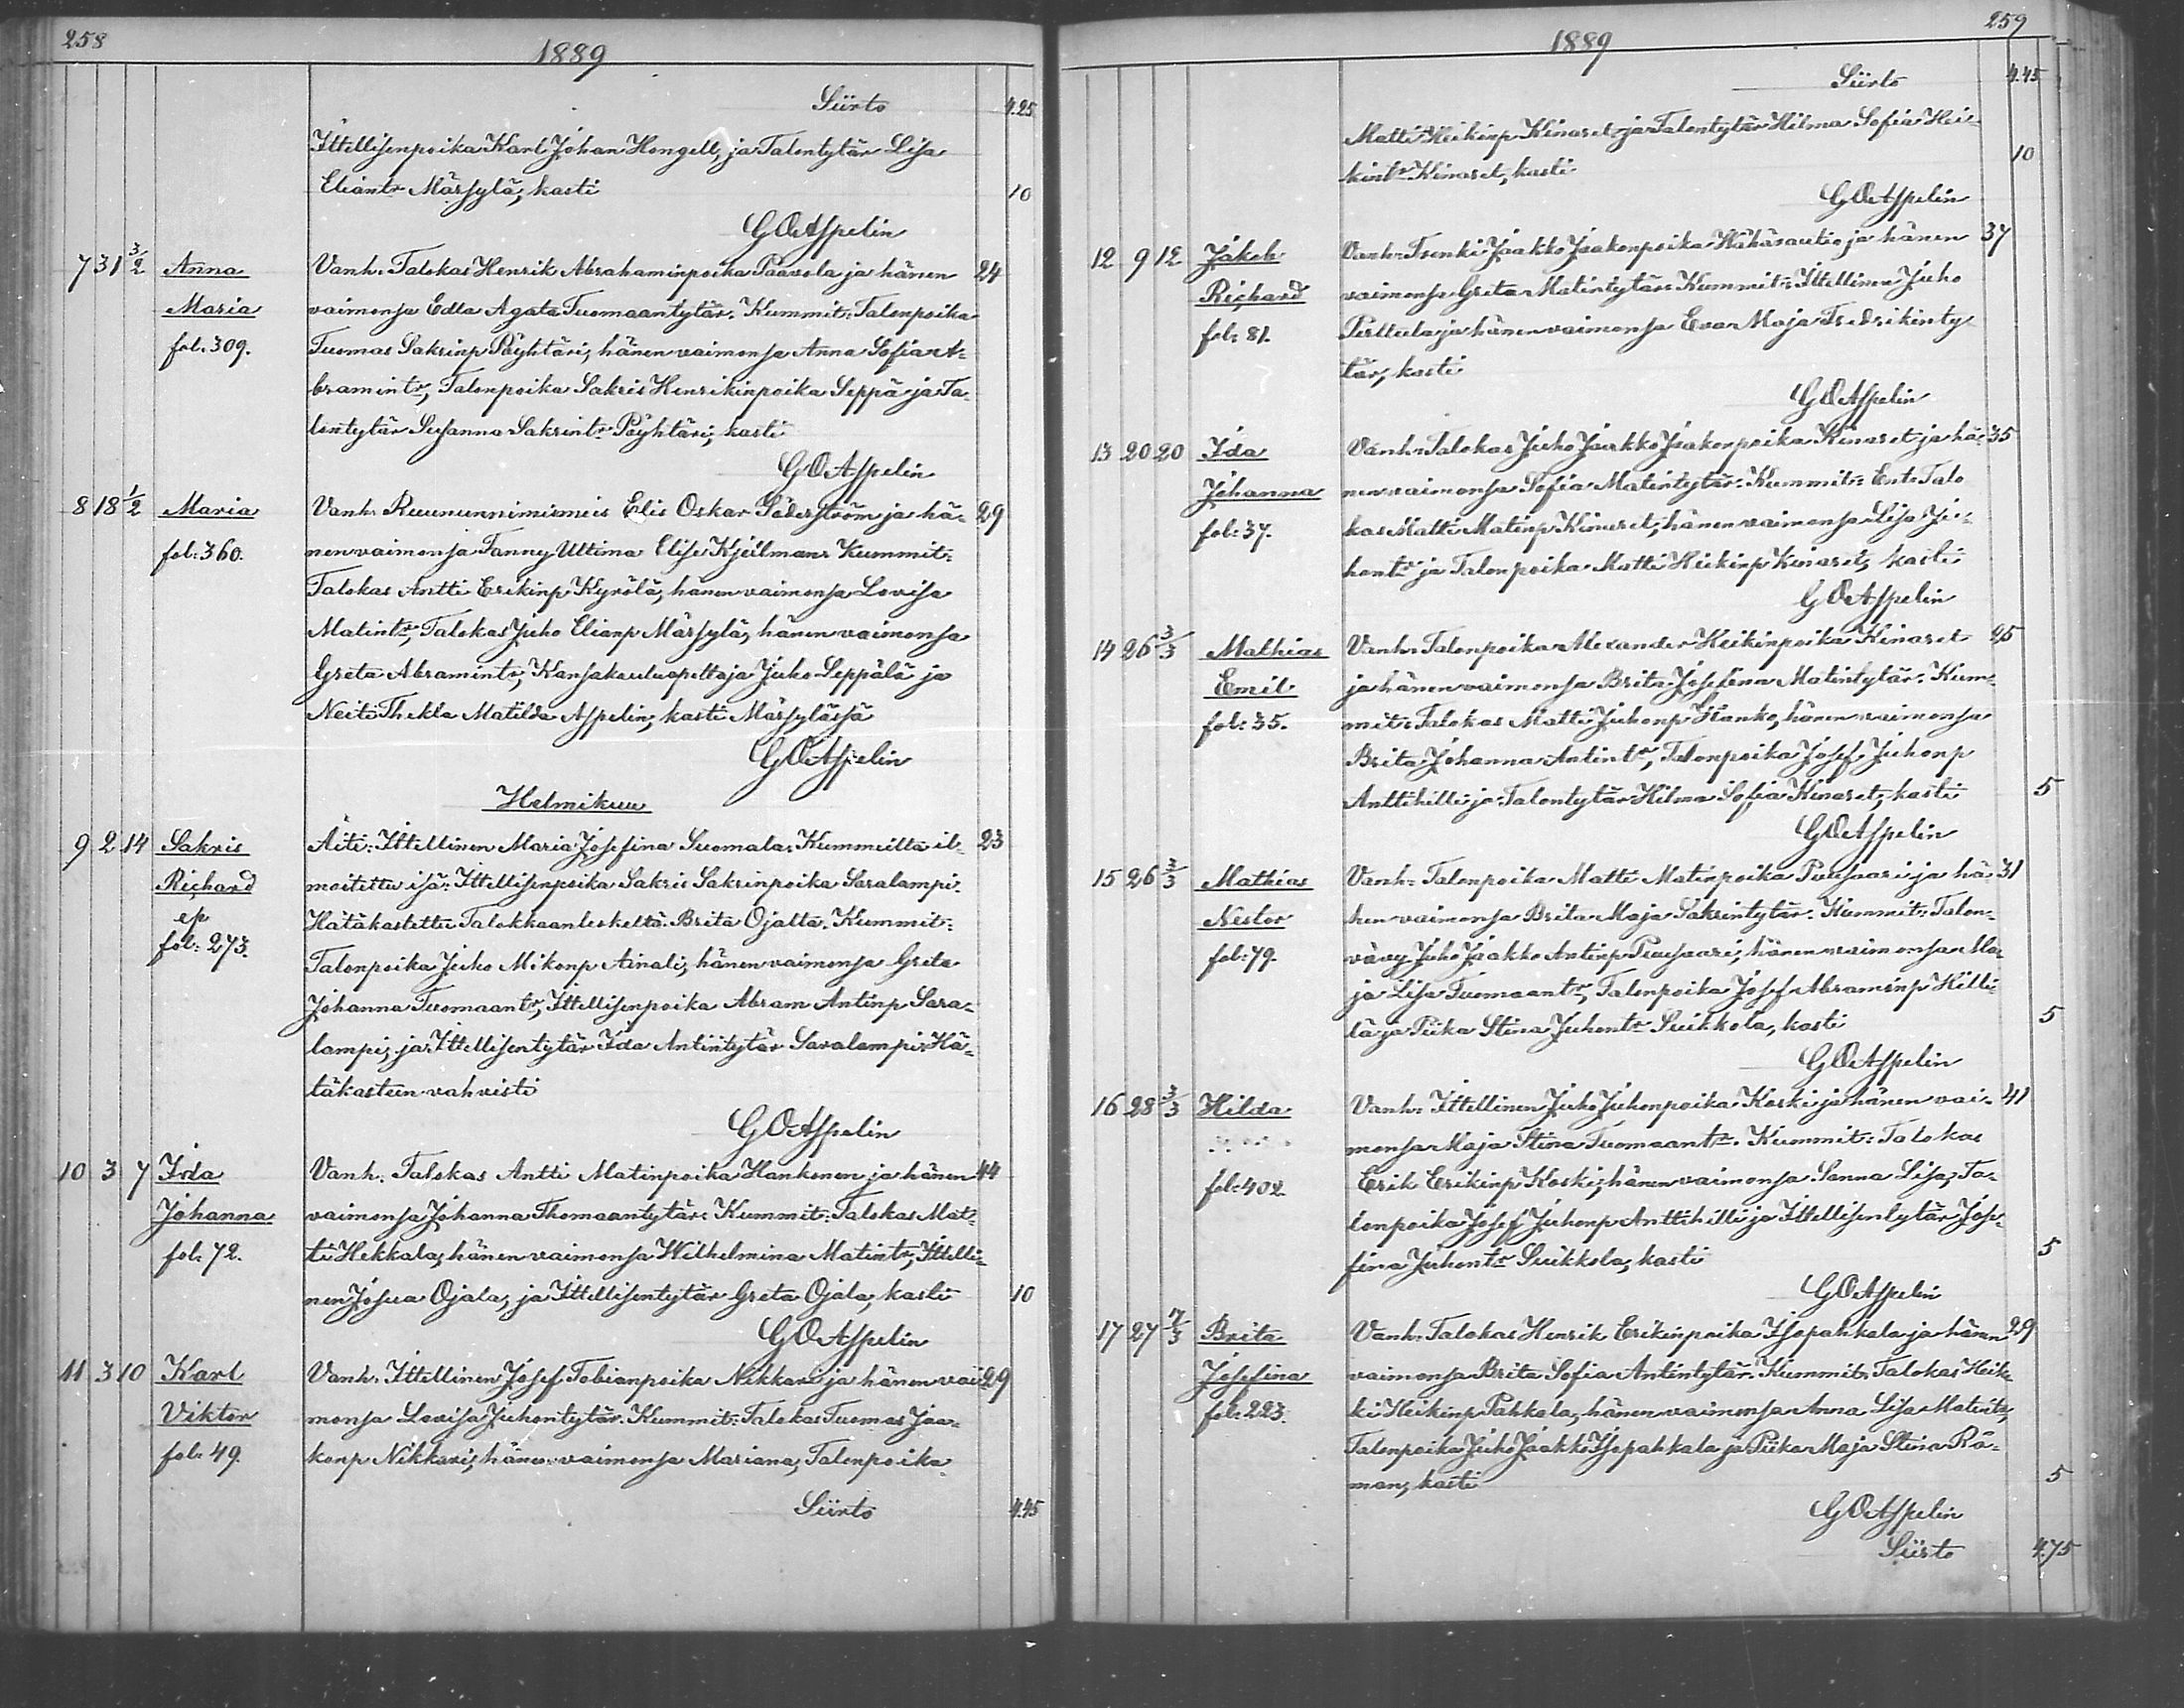 258
1889
Siirto 4.25
Ittellisenpoika Karl Johan Hongell, ja Talontytär Lisa
Eliantr Märsylä; kasti 10
G O Asplin
7 31 3/2 Anna Vanh. Talokas Henrik Abrahaminpoika Paavola ja hänen 24
Maria vaimonsa Edla Agata Tuomaantytär. Kummit: Talonpoika
fol. 309. Tuomas Sakrinp Pöyhtäri; hänen vaimonsa Anna Sofia A-
bramintr; Talonpoika Sakris Henrikinpoika Seppä ja Ta-
lontytär Susanna Sakrintr Pöyhtäri; kasti
G O Aspelin
8 18 1/2 Maria Vanh. Ruununnimismies Elis Oskar Söderström ja hä- 29
fol: 360. nen vaimonsa Fanny Ultima Elise Kjellman. Kummit:
Talokas Antti Erikinp Kyrölä; hänen vaimonsa Lovisa
Matintr; Talokas Juho Elianp Märsylä; hänen vaimonsa
Greta Abramintr; Kansakouluopettaja Juho Leppälä ja
Neiti Thekla Matilda Aspelin; kasti Märsylässä
G O Aspelin
Helmikuu
9 2 14 Sakris Äiti: Ittellinen Maria Josefina Suomala. Kummeilta il- 23
Richard moitettu isä: Ittellisenpoika Sakris Sakrinpoika Saralampi.
ep Hätäkastettu Talokkaanleskeltä Brita Ojalta. Kummit:
fol: 273. Talonpoika Juho Mikonp Ainali; hänen vaimonsa Greta
Johanna Tuomaantr; Ittellisenpoika Abram Antinp Sara-
lampi; ja Ittellisentytär Ida Antintytär Saralampi. Hä-
täkasteen vahvisti
G O Aspelin
10 3 7 Ida Vanh. Talokas Antti Matinpoika Hankonen ja hänen 44
Johanna vaimonsa Johanna Thomaantytär. Kummit: Talokas Mat-
fol. 72. ti Hekkala; hänen vaimonsa Wilhelmina Matintr; Ittelli-
nen Josua Ojala; ja Ittellisentytär Greta Ojala, kasti 10
G O Aspelin
11 3 10 Karl Vanh. Ittellinen Josef Tobianpoika Nikkari ja hänen vai 29
Viktor monsa Lovisa Juhontytär. Kummit: Talokas Tuomas Jaa-
fol. 49. konp Nikkari; hänen vaimonsa Mariana; Talonpoika
Siirto 4.45
259
1889
Siirto 4.45
Matti Heikinp Kinaret ja Talontytär Hilma Sofia Hei-
kintr Kinaret, kasti 10
G O Aspelin
12 9 12 Jakob Vanh. Trenki Jaakko Jaakonpoika Wähäsautio ja hänen 37
Richard vaimonsa Greta Matintytär. Kummit: Ittellinen Juho
fol: 81. Perttula ja hänen vaimonsa Eva Maja Fredrikinty-
tär, kasti
G O Aspelin
13 20 20 Ida Vanh. Talokas Juho Jaakko Jaakonpoika Kinaret ja hä- 35
Johanna nen vaimonsa Sofia Matintytär. Kummit: Ent. Talo
fol: 37. kas Matti Matinp Kinaret; hänen vaimonsa Lisa Ju-
hontr ja Talonpoika Matti Heikinp Kinaret; kasti
G O Aspelin
14 26 3/3 Mathias Vanh. Talonpoika Alexander Heikinpoika Kinaret 25
Emil ja hänen vaimonsa Brita Josefina Matintytär. Kum-
fol: 35. mit: Talokas Matti Juhonp Hanko, hänen vaimonsa
Brita Johanna Antintr; Talonpoika Josef Juhonp
Anttihilli ja Talontytär Hilma Sofia Kinaret; kasti 5
G O Aspelin
15 26 3/3 Mathias Vanh. Talonpoika Matti Matinpoika Puusaari ja hä- 31
Nestor nen vaimonsa Brita Maja Sakrintytär. Kummit: Talon-
fol: 79. vävy Juho Jaakko Antinp Puusaari; hänen vaimonsa Ma-
ja Lisa Tuomaantr; Talonpoika Josef Abraminp Hilli-
lä ja Piika Stina Juhontr Suikkola, kasti 5
G O Aspelin
16 28 3/3 Hilda Vanh. Ittellinen Juho Juhonpoika Koski ja hänen vai- 41
monsa Maja Stina Tuomaantr. Kummit: Talokas
fol: 402. Erik Erikinp Koski; hänen vaimonsa Sanna Lisa; Ta-
lonpoika Josef Juhonp Anttihilli ja Ittellisentytär Jose-
fina Juhontr Suikkola, kasti 5
G O Aspelin
17 27 7/3 Brita Vanh. Talokas Henrik Erikinpoika Isopahkala ja hänen 29
Josefina vaimonsa Brita Sofia Antintytär. Kummit: Talokas Heik-
fol: 223. ki Heikinp Pahkala, hänen vaimonsa Anna Lisa Matintr;
Talonpoika Juho Jaakko Isopahkala ja Piika Maja Stina Rå-
man; kasti 5
G O Aspelin
Siirto 4.75